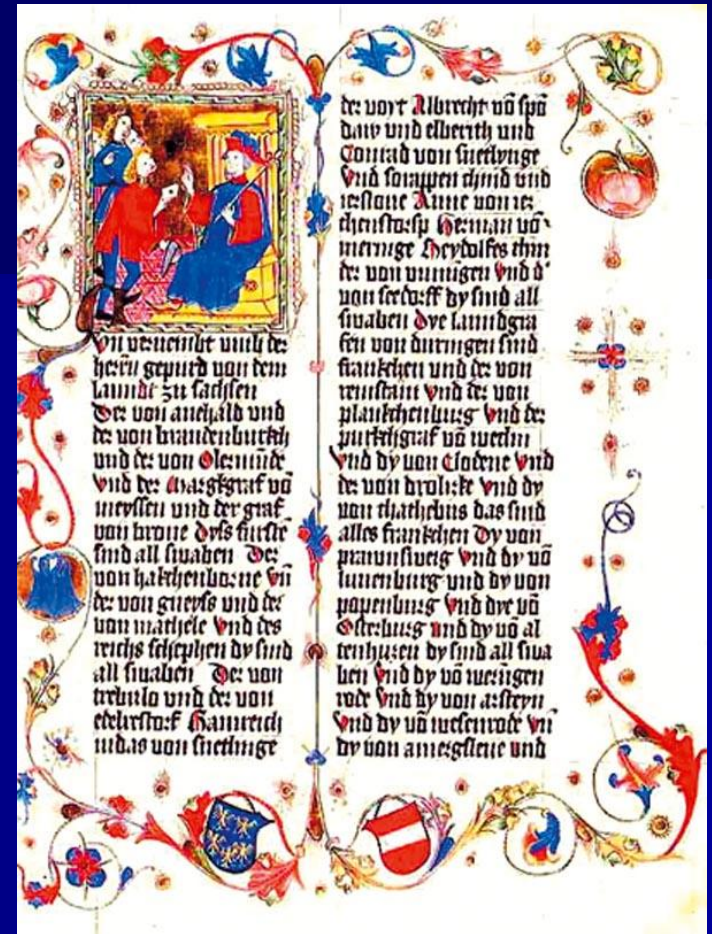 vn vernembt vmb der
herrn gepurd von dem
lanndt zu sachsen
Der von anehald vnd
der von brandenburkh
vnd der von Olermunde
Vnd der Margkgraf vō
meyssen vnd der graf
von brone Dyss furste
sind all swaben Der
von hakhenborne vn̄
der von gneyss vnd der
von mathele Vnd des
reichs schephen dy sind
all swaben Der von
trebulo vnd der von
edelrestorf Hainreich
iudas von snetlinge
der voyt Albrecht vō spō
daw vnd elberith vnd
Conrad von snetlynge
Vnd schrappen chind vnd
Anne von ier
chenstorsp Herman vō
meringe Heydolfes chin
der von winnigen Vnd d'
von seedorff dy sind all
swaben Dye lanndgra
fen von duringen sind
frankchen vnd der von
reinstain Vnd der von
plankchenburg Vnd der
purkhgraf vō wethin
Vnd dy von Clodene Vnd
der von drobizke Vnd dy
von chathebus das sind
alles frankchen Dy von
prawnsweig Vnd dy vō
lunenburg vnd dy von
popenburg Vnd dye vō
Osterburg vnd dy vō al
tenhusen dy sind all swa
ben Vnd dy vō weringen
rode Vnd dy von arsteyn
Vnd dy vō wesenrode vn̄
dy von amergsleue vnd